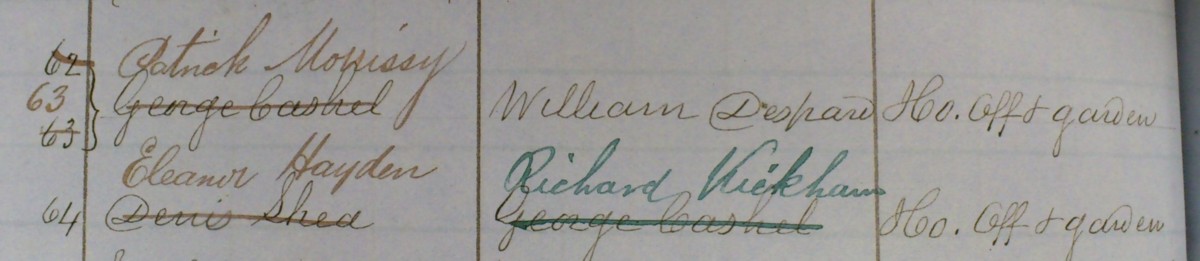 62 Patrick Morrissy
63 George Cashel William Despard Ho. Off & garden
63
Eleanor Hayden Richard Kickham
64 Denis Shea George Cashel Ho. Off & garden